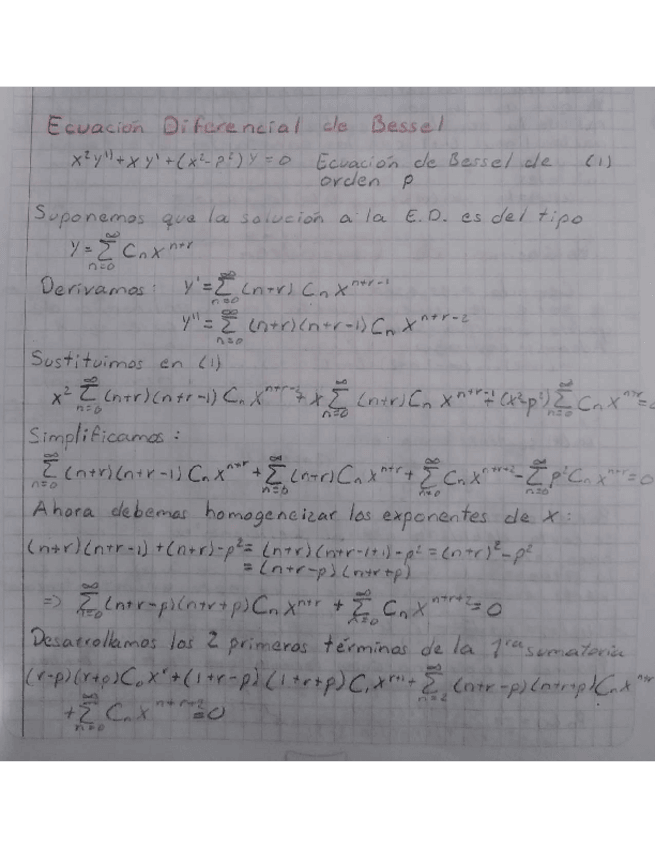 Ecuación Diferencial de Bessel
x²y''+xy'+(x²-p²)y=0 Ecuación de Bessel de (1)
orden p
Suponemos que la solución a la E.D. es del tipo
y=∑_{n=0}^{∞} Cₙx^{n+r}
Derivamos: y'=∑_{n=0}^{∞} (n+r) Cₙ x^{n+r-1}
y''=∑_{n=0}^{∞} (n+r)(n+r-1) Cₙ x^{n+r-2}
Sustituimos en (1)
x² ∑_{n=0}^{∞} (n+r)(n+r-1) Cₙ x^{n+r-2} + x∑_{n=0}^{∞} (n+r) Cₙ x^{n+r-1} + (x²-p²)∑_{n=0}^{∞} Cₙ x^{n+r}=0
Simplificamos:
∑_{n=0}^{∞} (n+r)(n+r-1) Cₙ x^{n+r} + ∑_{n=0}^{∞} (n+r) Cₙ x^{n+r} + ∑_{n=0}^{∞} Cₙ x^{n+r+2} - ∑_{n=0}^{∞} p² Cₙ x^{n+r}=0
Ahora debemos homogeneizar los exponentes de x:
(n+r)(n+r-1)+(n+r)-p² = (n+r)(n+r-1+1)-p² = (n+r)²-p²
= (n+r-p)(n+r+p)
=> ∑_{n=0}^{∞} (n+r-p)(n+r+p) Cₙ x^{n+r} + ∑_{n=0}^{∞} Cₙ x^{n+r+2}=0
Desarrollamos los 2 primeros términos de la 1ra sumatoria
(r-p)(r+p)C₀x^r+(1+r-p)(1+r+p)C₁x^{r+1}+∑_{n=2}^{∞} (n+r-p)(n+r+p)Cₙx^{n+r}
+∑_{n=0}^{∞} Cₙ x^{n+r+2}=0